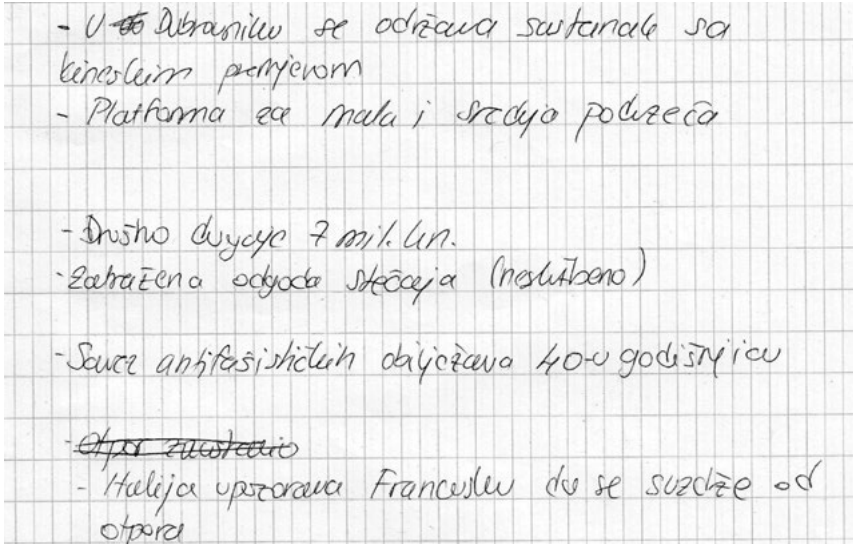 - U Dubrovniku se održava sastanak sa
kineskim premjerom
- Platforma za mala i srednja poduzeća
- Društvo duguje 7 mil. kn.
- Zatražena odgoda stečaja (neslužbeno)
- Savez antifašističkih obilježava 40-u godišnjicu
- Otpor zaustavio
- Italija upozorava Francusku da se suzdrže od
otpora